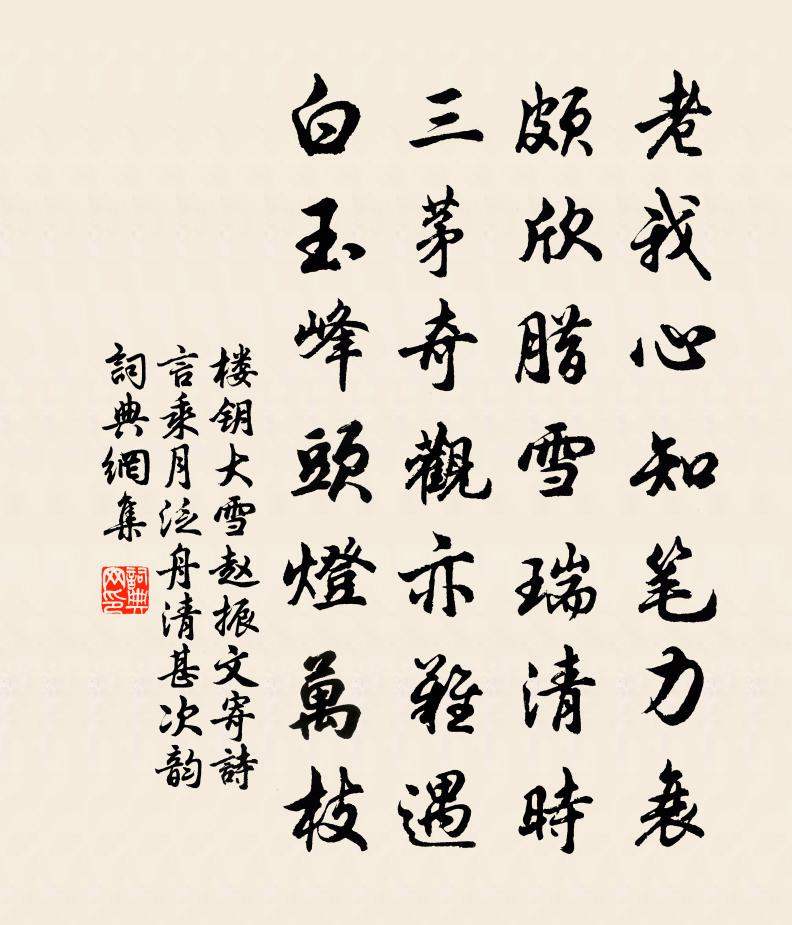 老我心知笔力衰
頗欣腊雪瑞清時
三茅奇觀亦難遇
白玉峰頭燈萬枝
楼钥大雪赵振文寄詩
言乘月泛舟清甚次韵
詞典網集
詞典网印